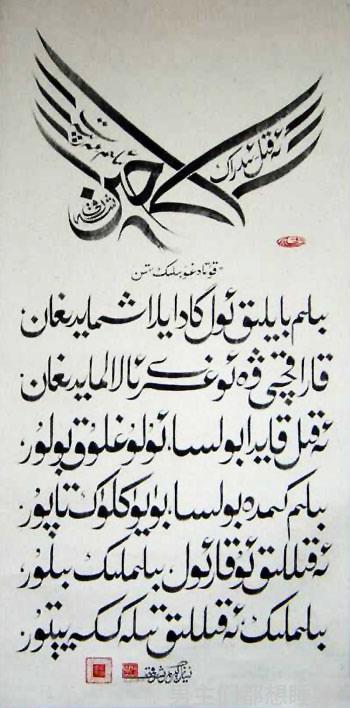 ئەقىل ئىدراك
قۇتادغۇبىلىك تىن
بىلىم بايلىق ئول گادايلاشمايدىغان
قاراقچى ۋە ئوغرى ئالالمايدىغان
ئەقىل قايدا بولسا، ئۇلۇغلۇق بولۇر،
بىلىم كىمدە بولسا، بۈيۈكلۈك تاپۇر.
ئەقىللىق ئۇقار ئول، بىلىملىك بىلۇر،
بىلىملىك، ئەقىللىق تىلەككە يېتۇر.